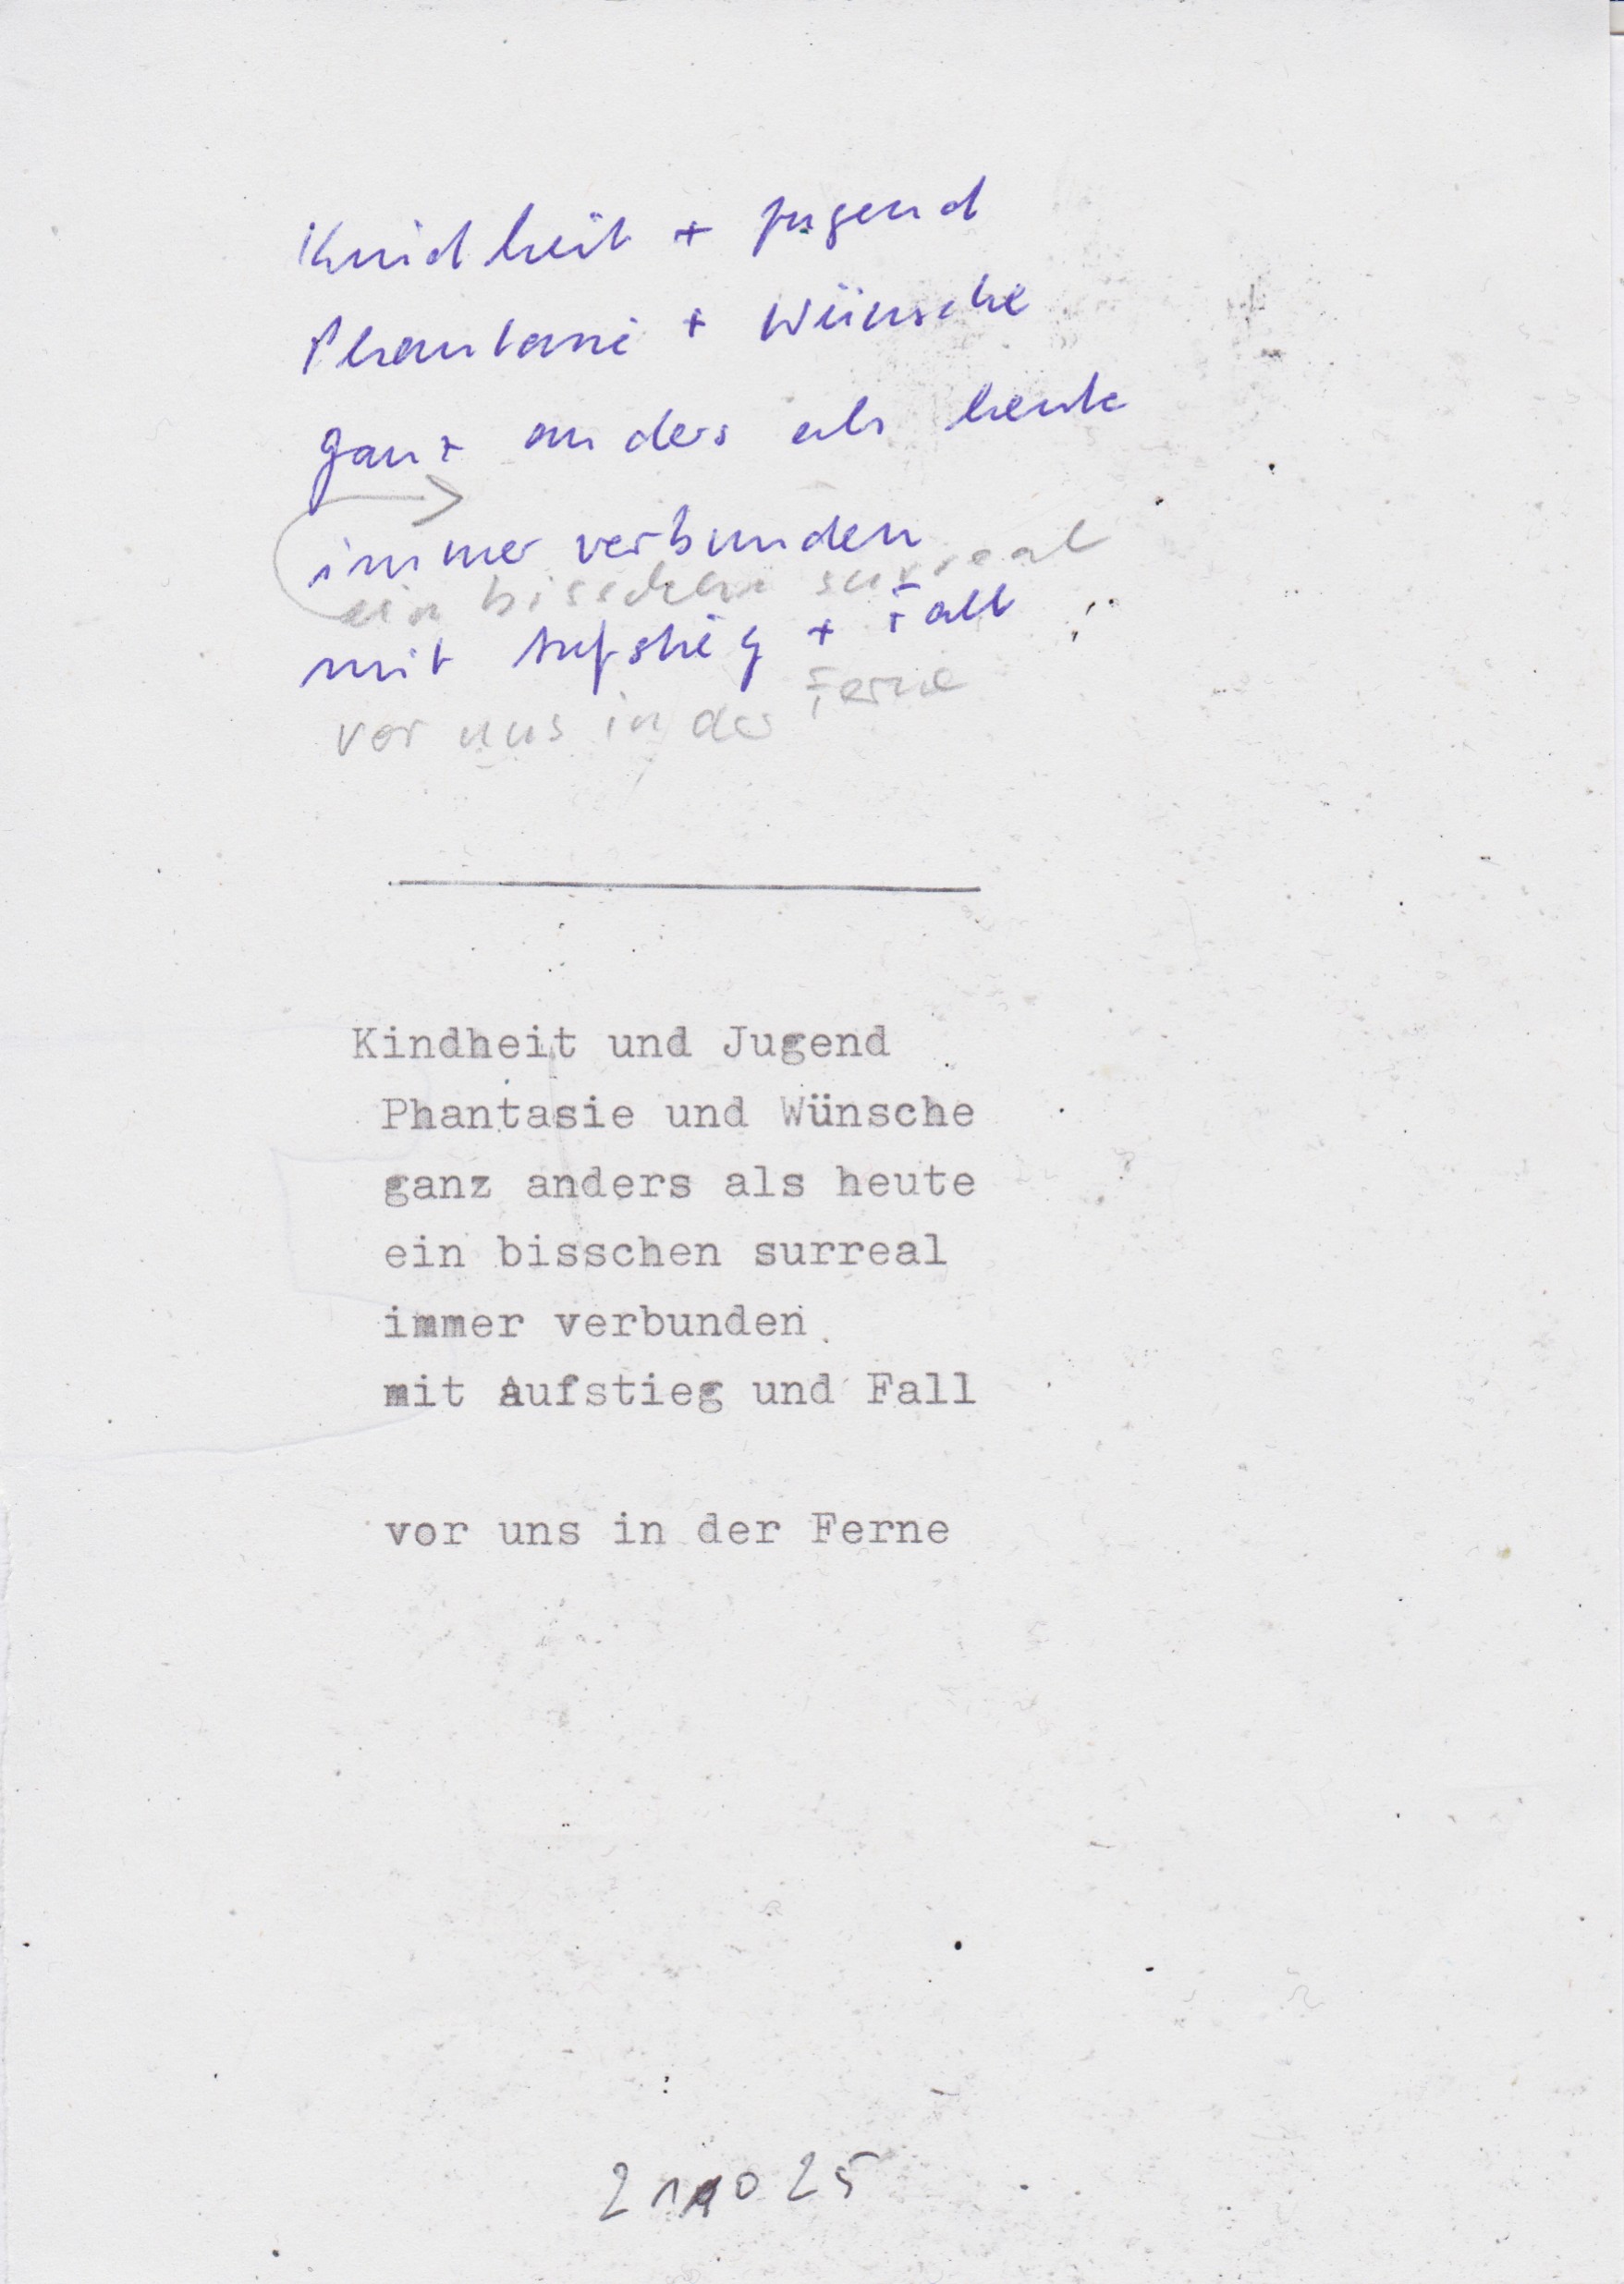 Kindheit + Jugend
Phantasie + Wünsche
ganz anders als heute
immer verbunden
ein bisschen surreal
mit Aufstieg + Fall
vor uns in der Ferne
Kindheit und Jugend
Phantasie und Wünsche
ganz anders als heute
ein bisschen surreal
immer verbunden
mit Aufstieg und Fall
vor uns in der Ferne
21 10 25